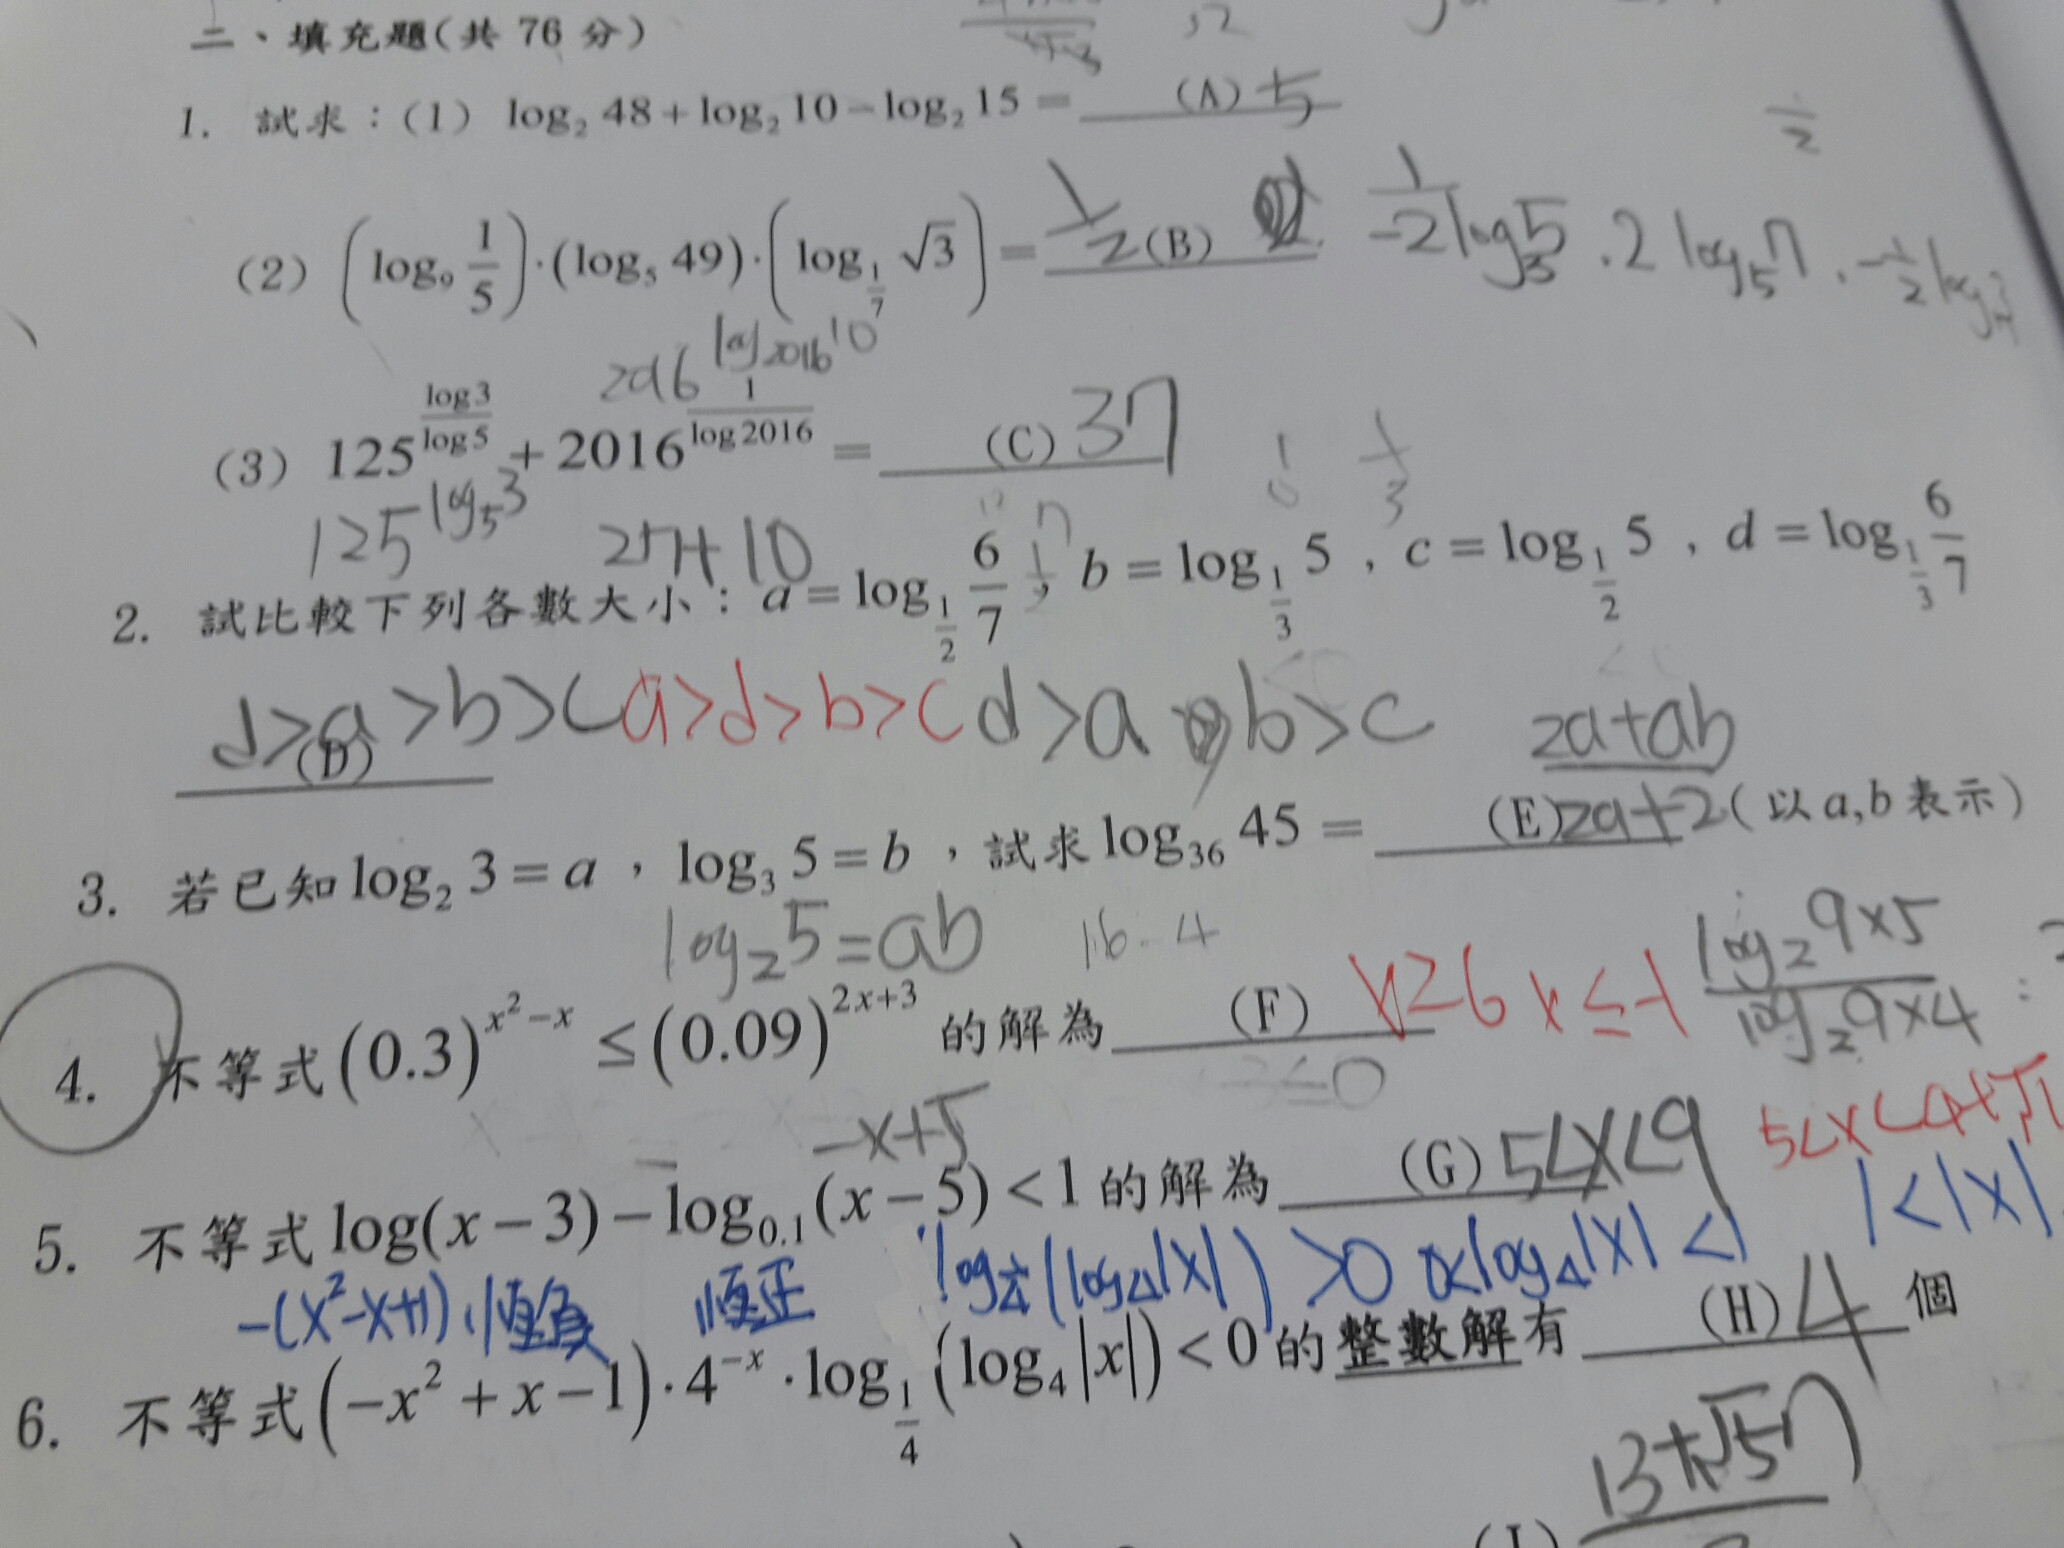 二、填充題(共 76 分)
1. 試求：(1) log₂ 48 + log₂ 10 − log₂ 15 = (A) 5
(2) (log₉ 1/5)·(log₅ 49)·(log_{1/7} √3) = 1/2 (B)
1/2
1/-2 log₃5 · 2 log₅7 · -1/2 log
2016^{log₂₀₁₆10}
(3) 125^{log3/log5} + 2016^{1/log2016} = (C) 37
125^{log₅3} 27+10
1/3
2. 試比較下列各數大小：a = log_{1/2} 6/7，b = log_{1/3} 5，c = log_{1/2} 5，d = log_{1/3} 6/7
(D) d>a>b>c a>d>b>c d>a b>c
2a+ab
3. 若已知 log₂ 3 = a，log₃ 5 = b，試求 log₃₆ 45 = (E) 2a+2 (以 a,b 表示)
log₂5=ab 16-4
log₂9×5 / log₂9×4
4. 不等式 (0.3)^{x²−x} ≤ (0.09)^{2x+3} 的解為 (F) x≥6 x≤-1
≤0
-x+5
5. 不等式 log(x−3) − log₀.₁(x−5) < 1 的解為 (G) 5<x<9
5<x<4+√11
-(x²-x+1) 恆負 恆正 log_{1/4}(log₄|x|)>0 0<log₄|x|<1 1<|x|
6. 不等式 (−x² + x − 1)·4^{−x}·log_{1/4}(log₄|x|) < 0 的整數解有 (H) 4 個
(I) 13+√57